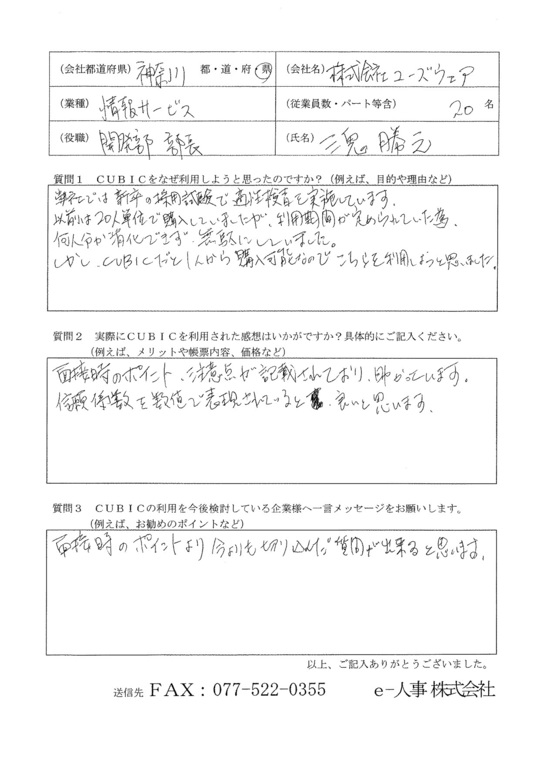 (会社都道府県) 神奈川 都・道・府・県 (会社名) 株式会社ユーズウェア
(業種) 情報サービス (従業員数・パート等含) 20 名
(役職) 開発部 部長 (氏名) 三鬼 勝元
質問1 CUBICをなぜ利用しようと思ったのですか？(例えば、目的や理由など)
弊社では新卒の採用試験で適性検査を実施しています。
以前は20人単位で購入していましたが、利用期間が定められていた為、
何人分か消化できず、無駄にしていました。
しかし、CUBICだと1人から購入可能なのでこちらを利用しようと思いました。
質問2 実際にCUBICを利用された感想はいかがですか？具体的にご記入ください。
(例えば、メリットや帳票内容、価格など)
面接時のポイント、注意点が記載されており、助かっています。
信頼係数を数値で表現されていると 良いと思います。
質問3 CUBICの利用を今後検討している企業様へ一言メッセージをお願いします。
(例えば、お勧めのポイントなど)
面接時のポイントより今よりも切り込んだ質問が出来ると思います。
以上、ご記入ありがとうございました。
送信先 FAX：077-522-0355 e-人事 株式会社